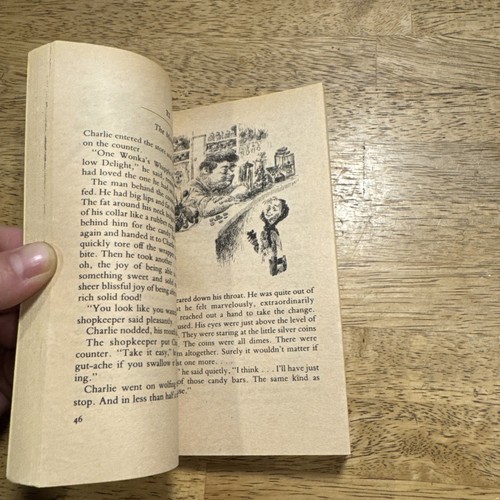 The
Charlie entered the store
on the counter.
"One Wonka's Wh
low Delight," he said,
had loved the one he had
The man behind the
fed. He had big lips and
The fat around his neck
of his collar like a rubber
behind him for the candy
again and handed it to Charlie
quickly tore off the wrapper
bite. Then he took another.
oh, the joy of being able
something sweet and solid
sheer blissful joy of being able
rich solid food!
"You look like you wan
shopkeeper said pleasantly.
Charlie nodded, his mou
The shopkeeper put C
counter. "Take it easy,"
gut-ache if you swallow
ing."
Charlie went on wolfing
stop. And in less than half
46
ared down his throat. He was quite out of
he felt marvelously, extraordinarily
reached out a hand to take the change.
used. His eyes were just above the level of
They were staring at the little silver coins
The coins were all dimes. There were
em altogether. Surely it wouldn't matter if
st one more. . . .
he said quietly, "I think . . . I'll have just
of those candy bars. The same kind as
e."